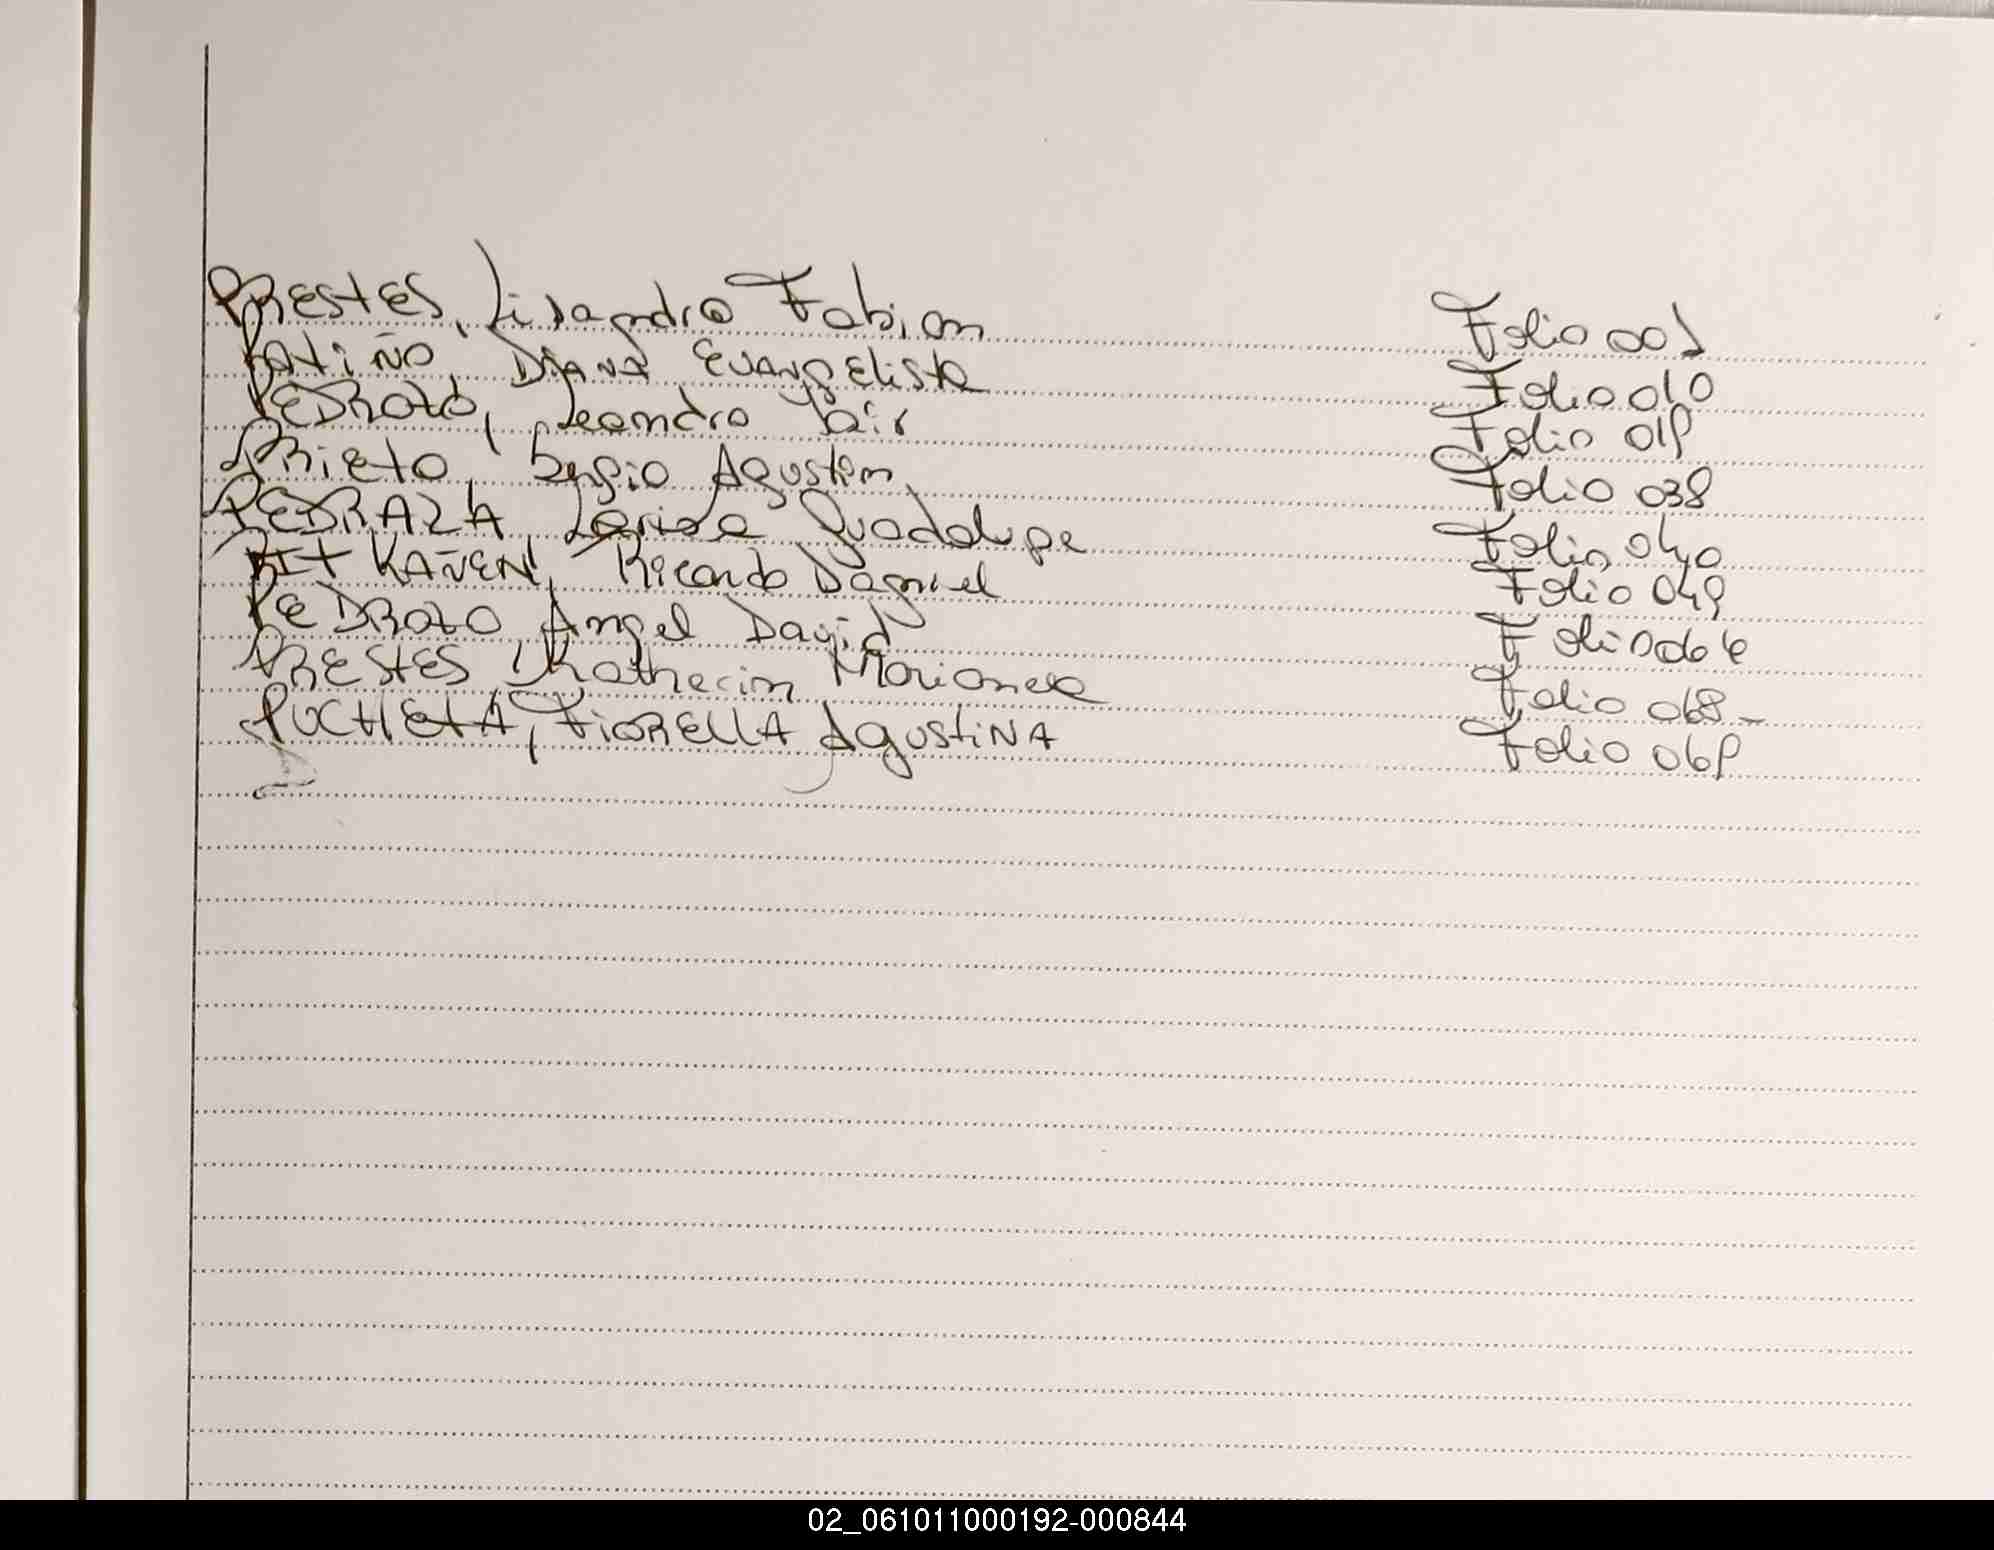 PRESTES, Lisandro Fabian Folio 001
PATIÑO, DIANA EVANGELISTA Folio 010
PEDROZO, Leandro Yair Folio 019
PRIETO, Sergio Agustin Folio 038
PEDRAZA, Larisa Guadalupe Folio 040
KAÑEN, Ricardo Daniel Folio 049
PEDROZO, Angel David Folio 064
PRESTES, Katherin Marianela Folio 068-
PUCHETA, FIORELLA AGUSTINA Folio 069
02_061011000192-000844